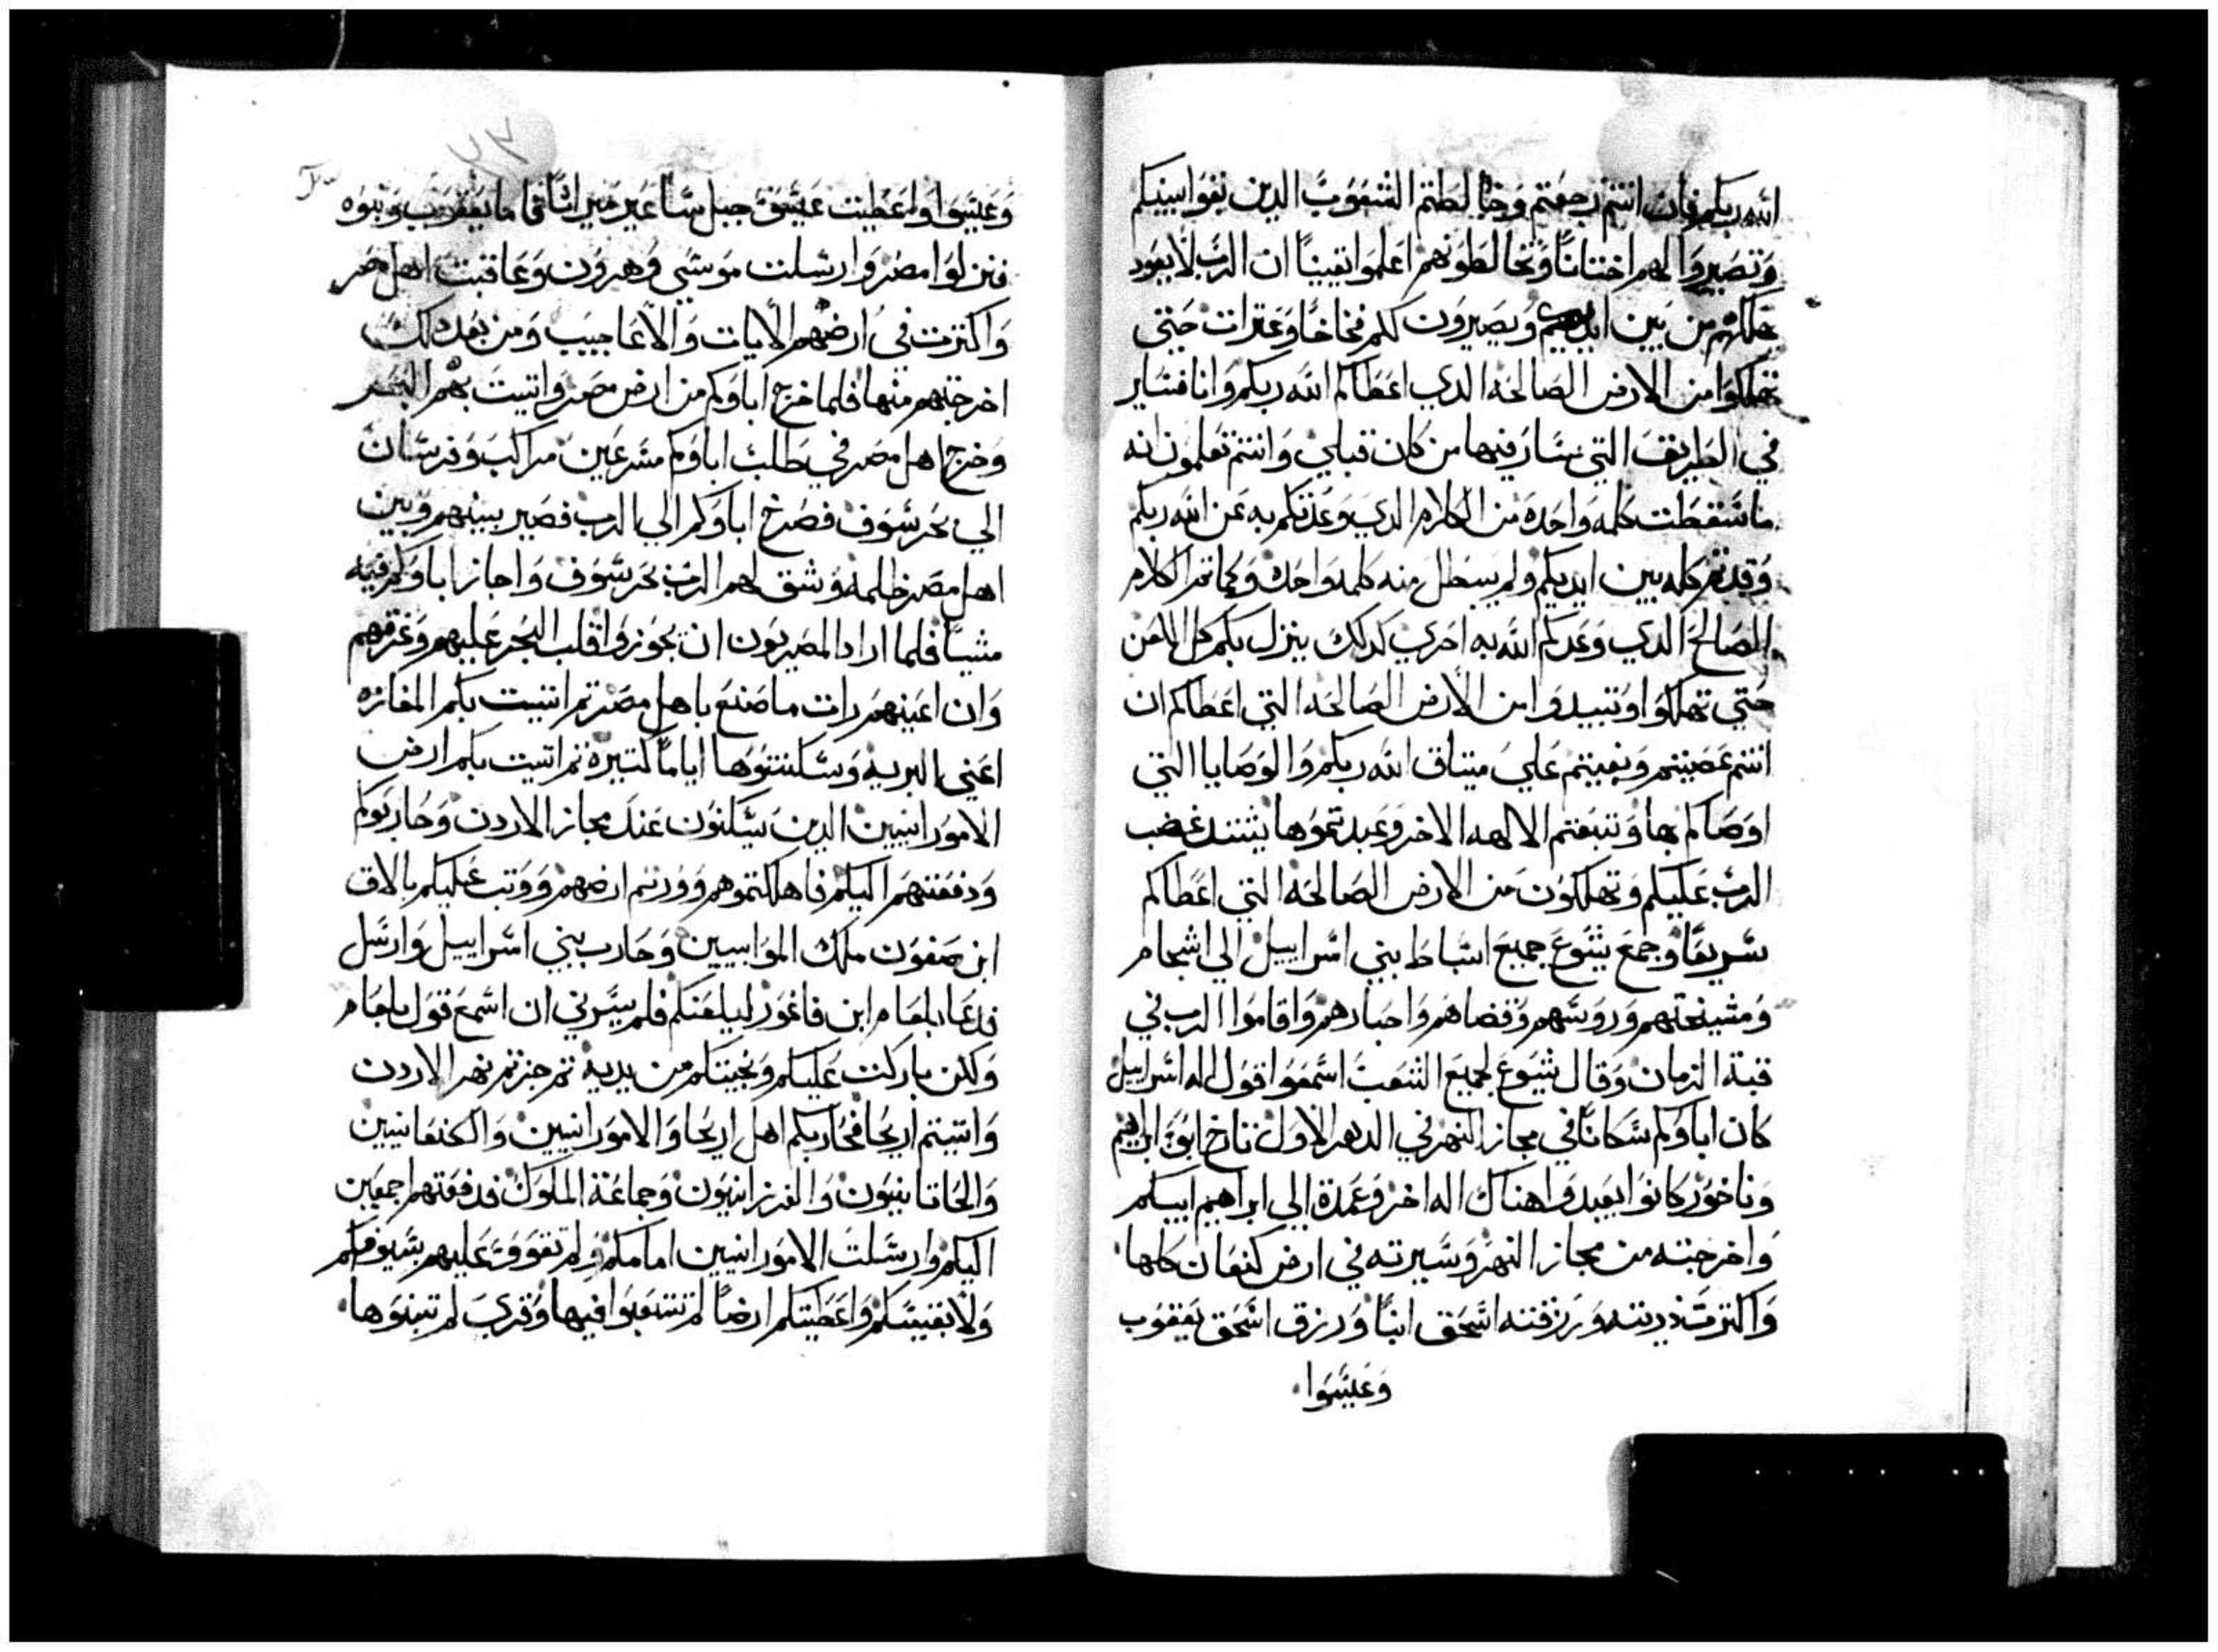 الله ربكم فان انتم رجعتم وخالطتم الشعوب الدين بقوا بينكم
وتصيروا لهم اختانا وتخالطونهم اعلموا يقينا ان الرب لا يعود
يهلكهم من بين ايديكم ويصيرون لكم فخاخا وعترات حتي
تهلكوا من الارض الصالحه الدي اعطاكم الله ربكم وانا فساير
في الطريقه التي سار فيها من كان قبلي وانتم تعلمون انه
ما سقطت كلمه واحده من الكلام الدي وعدتكم به عن الله ربكم
وقد تم كله بين ايديكم ولم يبطل منه كلمه واحده وكما تم الكلام
الصالح الدي وعدكم الله به احري كدلك ينزل بكم كل
حتي تهلكوا وتبيدوا من الارض الصالحه التي اعطاكم ان
انتم عصيتم وبغيتم علي ميتاق الله ربكم والوصايا التي
اوصاكم بها وتتبعتم الالهه الاخر وعبدتموها يشتد غضب
الرب عليكم وتهلكون من الارض الصالحه التي اعطاكم
سريعا وجمع يشوع جميع اسباط بني اسراييل الي اشجام
ومشيختهم وروسهم وقضاهم واحبارهم واقاموا الرب في
قبة الزمان وقال يشوع لجميع الشعب اسمعوا قول اله اسراييل
كان اباوكم سكانا في مجاز النهر في الدهر الاول تارخ ابو ابراهيم
وناخور كانوا يعبدوا هناك اله اخر وعمدة الي ابراهيم ابيكم
واخرجته من مجاز النهر وسيرته في ارض كنعان كلها
واكترت دريته ورزقته اسحق ابنا ورزق اسحق يعقوب
وعيسوا
وعيسوا واعطيت عيسو جبل ساعير ميراثا فاما يعقوب وبنوه
فنزلوا مصر وارسلت موسي وهرون وعاقبت اهل مصر
واكترت في ارضهم الايات والاعاجيب ومن بعد دلك
اخرجتهم منها فلما خرج اباوكم من ارض مصر واتيت بهم البحر
وخرج اهل مصر في طلب اباوكم مسرعين مراكب وفرسان
الي بحر سوف فصرخ اباوكم الي الرب فصير بينهم وبين
اهل مصر ظلمه وشق لهم الرب بحر سوف واجاز اباوكم فيه
مشيا فلما ارادا المصريون ان يجوزوا قلب البحر عليهم وغرقهم
وان اعينهم رات ما صنع باهل مصر تم اتيت بكم المفازه
اعني البريه وسكنتوها اياما كتيرة تم اتيت بكم ارض
الامورانيين الدين يسكنون عند مجاز الاردن وحاربوكم
ودفعتهم اليكم فاهلكتموهم وورتتم ارضهم ووتب عليكم بالاق
ابن صفون ملك الموابيين وحارب بني اسراييل وارسل
فدعا بلعام ابن فاغور ليلعنكم فلم يسرني ان اسمع قول بلعام
ولكن باركت عليكم ونجيتكم من يديه تم جزتم نهر الاردن
واتيتم اريحا فحاربكم اهل اريحا والامورانيين والكنعانيين
والحاتانيون والفرزانيون وجماعة الملوك فدفعتهم اجمعين
اليكم وارسلت الامورانيين امامكم ولم تقووا عليهم بسيوفكم
ولا بقسيكم واعطيتكم ارضا لم تتعبوا فيها وقري لم تبنوها